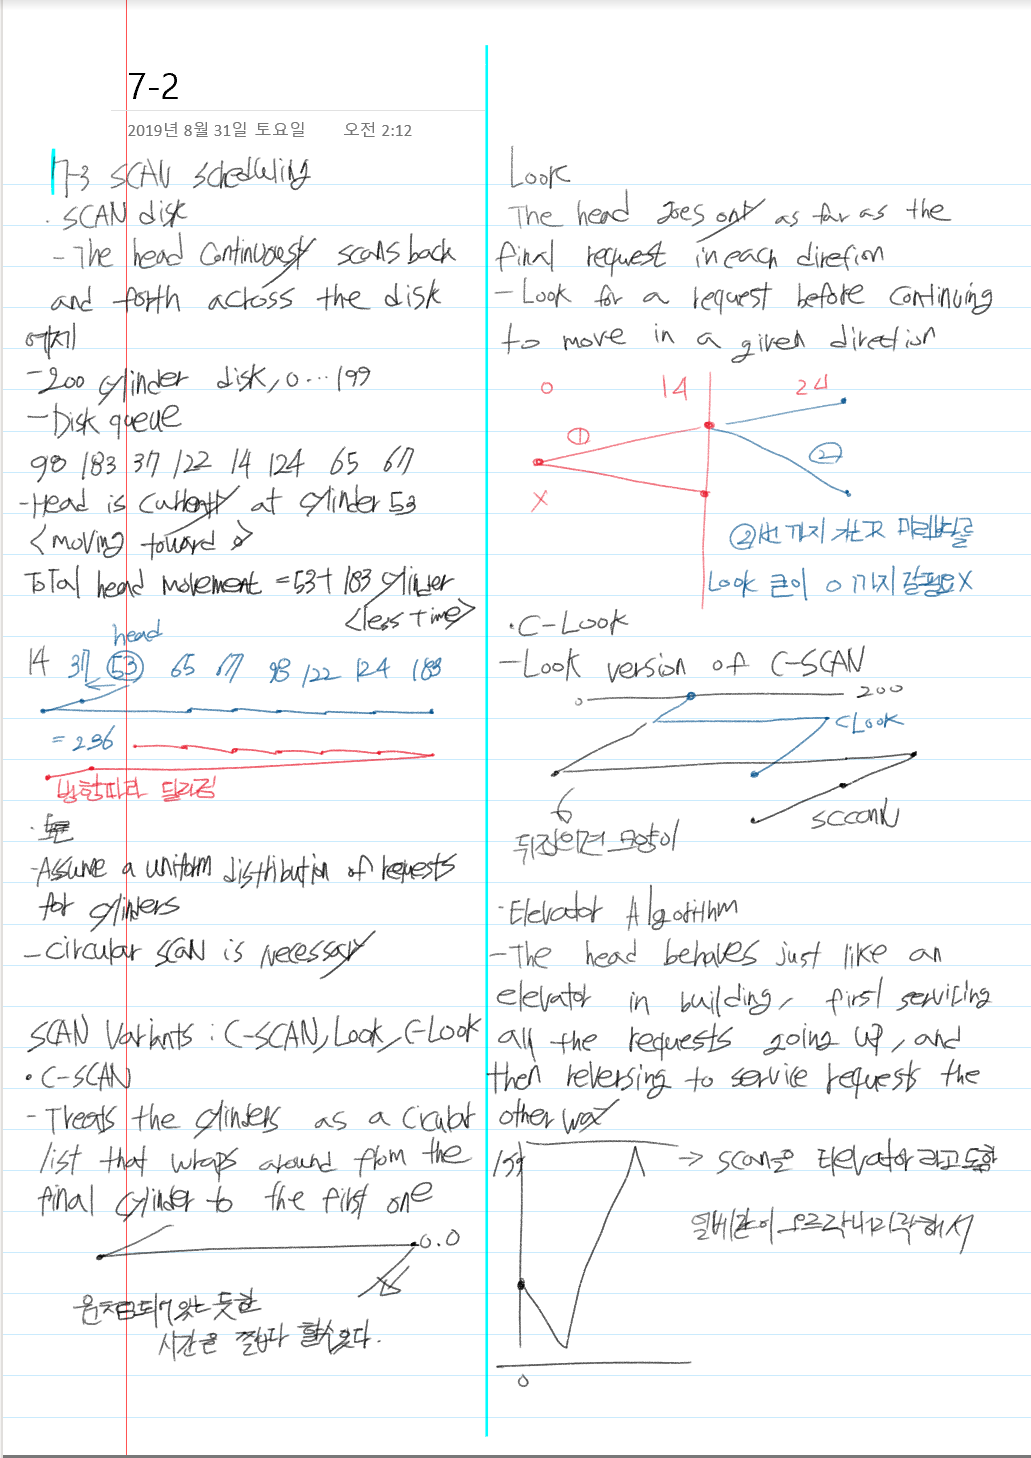 7-2
2019년 8월 31일 토요일 오전 2:12
7-3 SCAN scheduling
· SCAN disk
- The head continuously scans back
and forth across the disk
예제
- 200 cylinder disk, 0...199
- Disk queue
98 183 37 122 14 124 65 67
- Head is currently at cylinder 53
<moving toward 0>
Total head movement = 53 + 183 cylinder
<less time>
head
14 37 53 65 67 98 122 124 183
= 236
방향따라 달라짐
· 토론
- Assume a uniform distribution of requests
for cylinders
- Circular scan is necessary
SCAN Variants : C-SCAN, Look, C-Look
• C-SCAN
- Treats the cylinders as a cicular
list that wraps around from the
final cylinder to the first one
0.0
시간을 짧다 할수있다.
Look
The head goes only as far as the
final request in each direction
- Look for a request before continuing
to move in a given direction
0 14 24
① ②
X
②번까지 가고 미래방향
Look 굳이 0까지 갈필요X
· C-Look
- Look version of C-SCAN
0 200
CLOOK
SCCANN
· Elevator Algorithm
- The head behaves just like an
elevator in building, first servicing
all the requests going up, and
then reversing to service requests the
other way
199
→ scan을 Elevator라고도함
엘베같이 오르락내리락해서
0